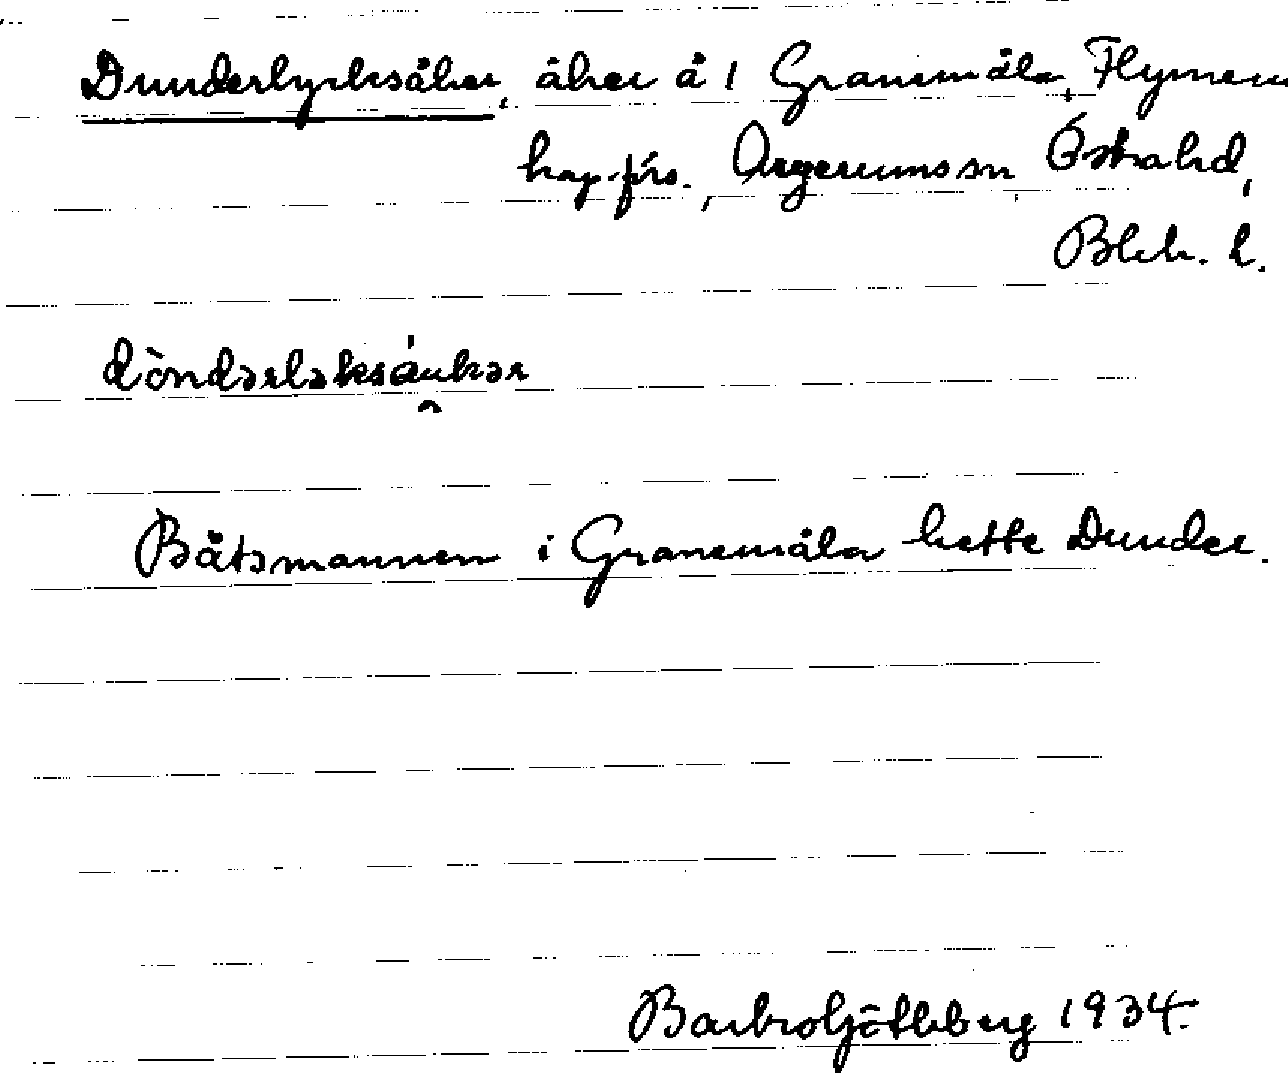 Dunderlycksåker, åker å 1 Granemåla, Flymens
kap.förs., Augerums sn, Östra hd,
Blek. l.
dòndərləksáukər
Båtsmannen i Granemåla hette Dunder.
Barbro Götleberg 1934.